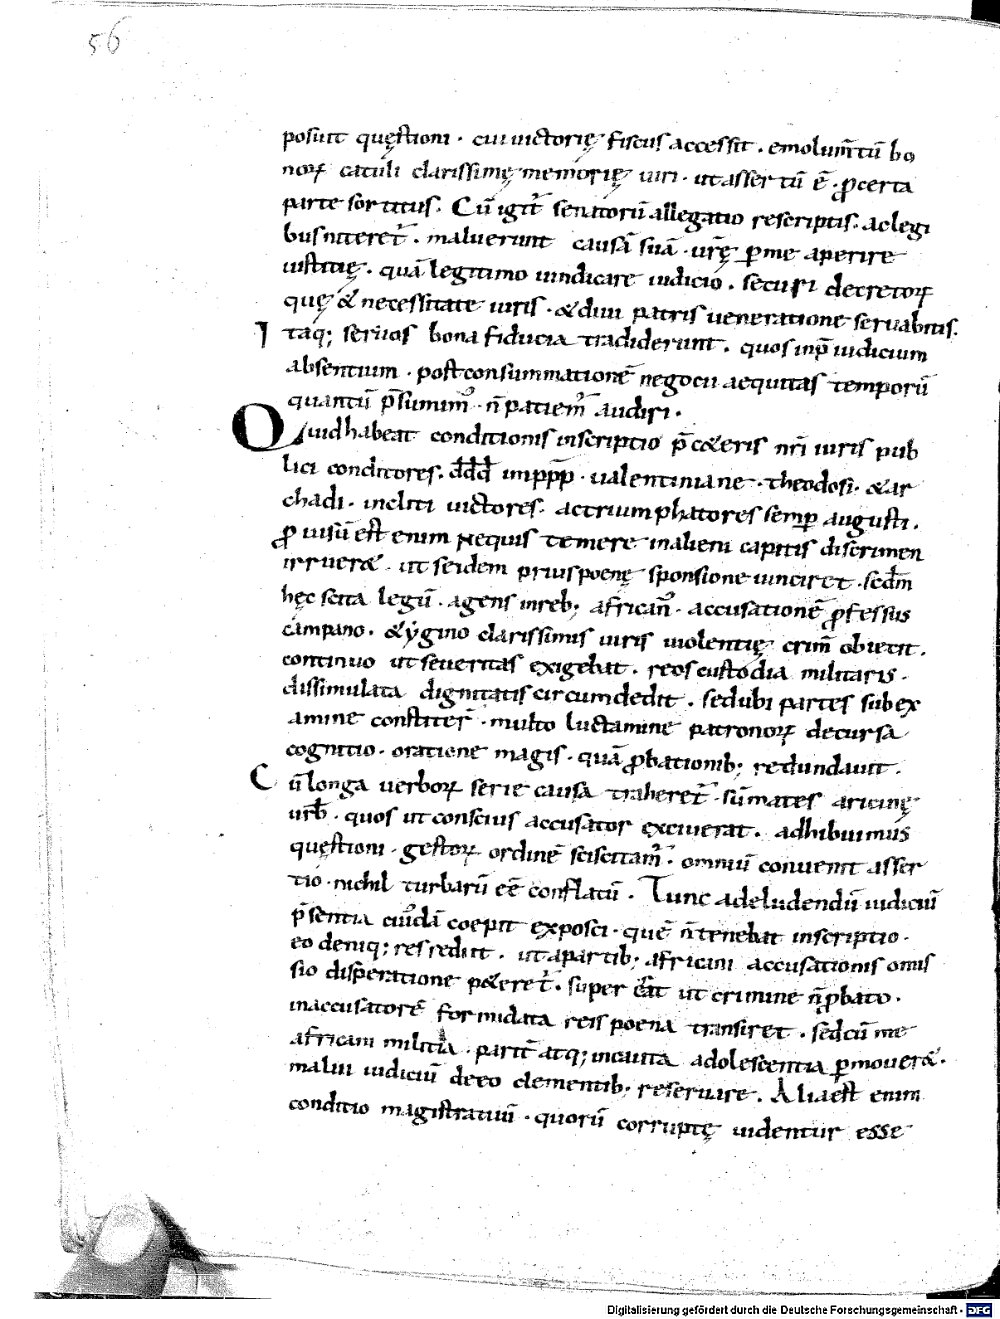 56
posuit quęstioni · cui uictorię fiscus accessit · emolum̄tū bo
noꝝ catuli clarissimę memorię uiri · ut assertū ē · ꝓ certa
parte sortitus · Cū igit̄ senatorū allegatio rescriptis · ac legi
bus niteret̄ · maluerunt causā suā · urę̄ ꝑ me aperire
iustitię · quā legitimo uindicare iudicio · securi decretoꝝ
quę & necessitate iuris · & diui patris ueneratione seruabitis.
Itaq; seruos bona fiducia tradiderunt · quos inp̄ iudicium
absentium · post consummationē negocii aequitas temporū
quantū p̄sumim᷒ · n̄ patiem̄ audiri ·
Quid habeat conditionis inscriptio p̄ c&eris nr̄i iuris pub
lici conditores · ddd̄ imppp̄ · ualentiniane · theodosi · & ar
chadi · incliti uictores · ac triumphatores semꝑ augusti ·
ꝓuisū est enim nequis temere in alieni capitis discrimen
irruer& · ut se idem prius poenę sponsione uinciret · sed m̄
hęc scita legū · agens in reb; african᷒ · accusationē ꝓfessus
campano · & ygino clarissimis uiris uiolentię crim̄ obiecit ·
continuo ut seueritas exigebat · reos custodia militaris ·
dissimulata dignitatis circumdedit · sed ubi partes sub ex
amine constiter̄ · multo luctamine patronoꝝ decursa
cognitio · oratione magis · quā ꝓbationib; redundauit ·
Cū longa uerboꝝ serie causa traheret̄ · sūmates aricinę
urb̄ · quos ut conscius accusator exciuerat · adhibuimus
quęstioni · gestoꝝ ordinē sciscitam̄ · omniū conuenit asser
tio · nichil turbarū eē conflatū · Tunc ad eludendū iudiciū
p̄sentia cuiusdā coepit exposci · quē n̄ tenebat inscriptio ·
eo deniq; res rediit · ut a partib; africani accusationis omis
sio disperatione p&eret̄ · super erat ut crimine n̄ ꝓbato ·
in accusatorē formidata reis poena transiret · sed cū me
africani militia · parit̄ atq; incauta adolescentia ꝑmouer& ·
malui iudiciū deeo clementib; reseruare · Alia est enim
conditio magistratuū · quorū corruptę uidentur esse
Digitalisierung gefördert durch die Deutsche Forschungsgemeinschaft - DFG